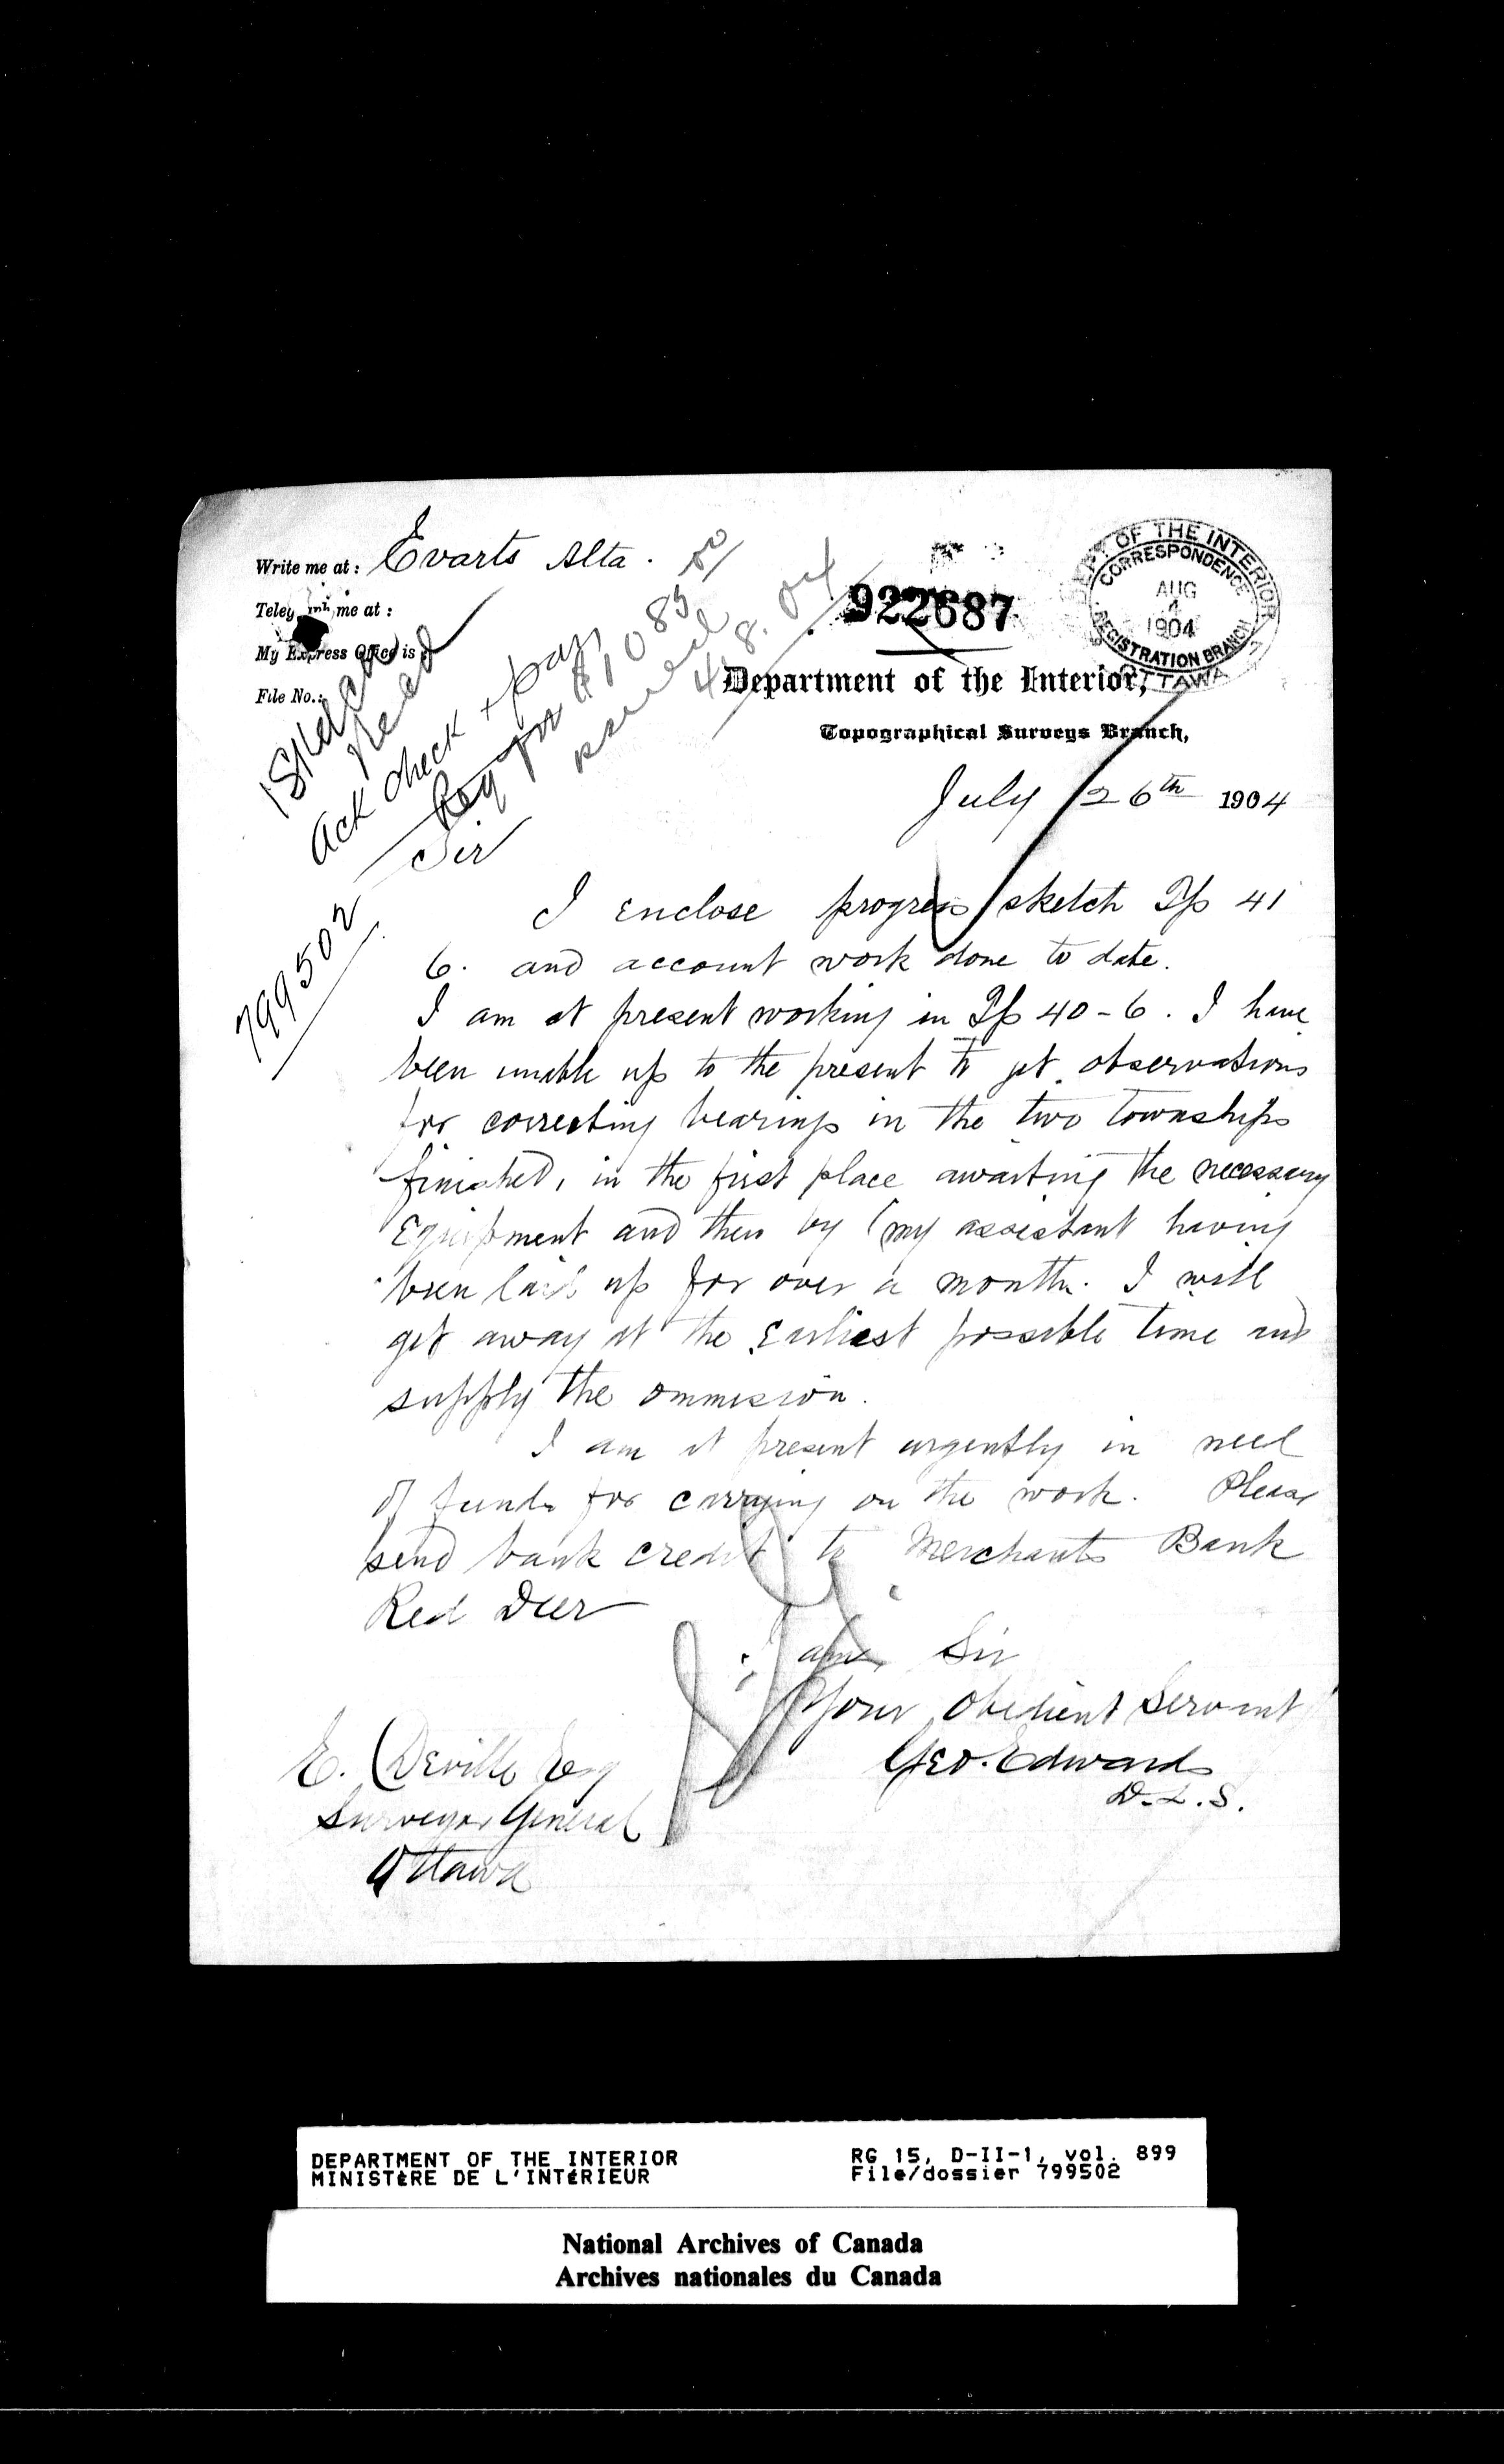 Write me at : Evarts Alta.
Telegraph me at :
My Express Office is :
File No.:
1 Sketch
filed
Ack check & pay
Req for $1085 00/
issued
4.8.04
799502
922687
DEPT OF THE INTERIOR
CORRESPONDENCE
AUG
4
1904
REGISTRATION BRANCH
OTTAWA
Department of the Interior,
Topographical Surveys Branch,
July 26th 1904
Sir
I enclose progress sketch Tp 41
6. and account work done to date.
I am at present working in Tp 40-6. I have
been unable up to the present to get observations
for correcting bearings in the two townships
finished, in the first place awaiting the necessary
Equipment and then by my assistant having
been laid up for over a month. I will
get away at the Earliest possible time and
supply the ommission.
I am at present urgently in need
of funds for carrying on the work. Please
send bank credit to Merchants Bank
Red Deer
I am, Sir
Your Obedient Servant
Geo. Edwards
D.L.S.
E. Deville Esq
Surveyor General
Ottawa
DEPARTMENT OF THE INTERIOR
MINISTÈRE DE L'INTÉRIEUR
RG 15, D-II-1, vol. 899
File/dossier 799502
National Archives of Canada
Archives nationales du Canada